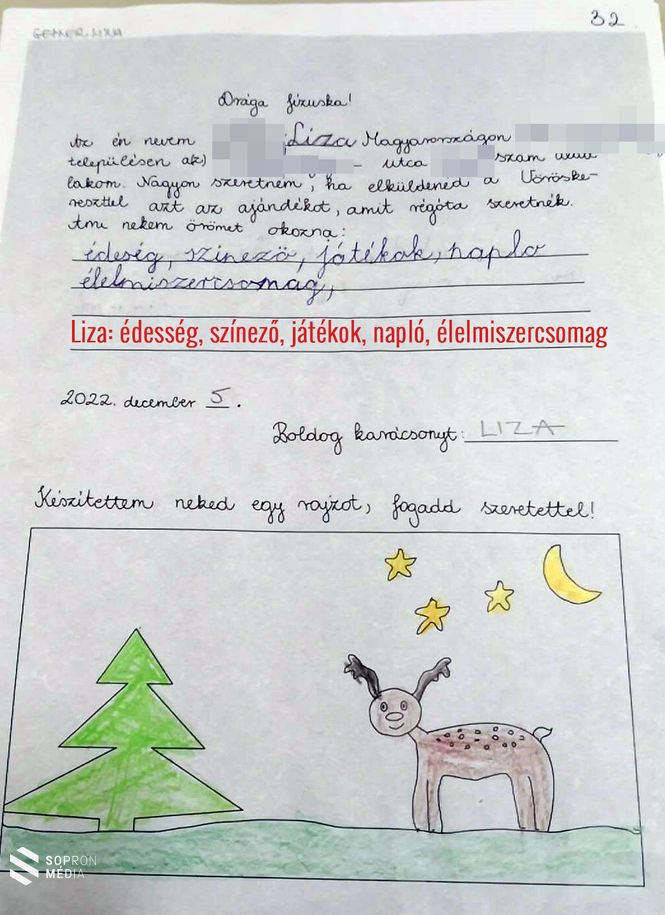 32.
Drága Jézuska!
Az én nevem Liza Magyarországon
településen a(z) - utca szám alatt
lakom. Nagyon szeretném, ha elküldenéd a Vöröske-
reszttel azt az ajándékot, amit régóta szeretnék.
Ami nekem örömet okozna:
édeség, szinező, játékok, napló
élelmiszercsomag,
Liza: édesség, színező, játékok, napló, élelmiszercsomag
2022. december 5.
Boldog karácsonyt: LIZA
Készítettem neked egy rajzot, fogadd szeretettel!
SOPRON
MÉDIA